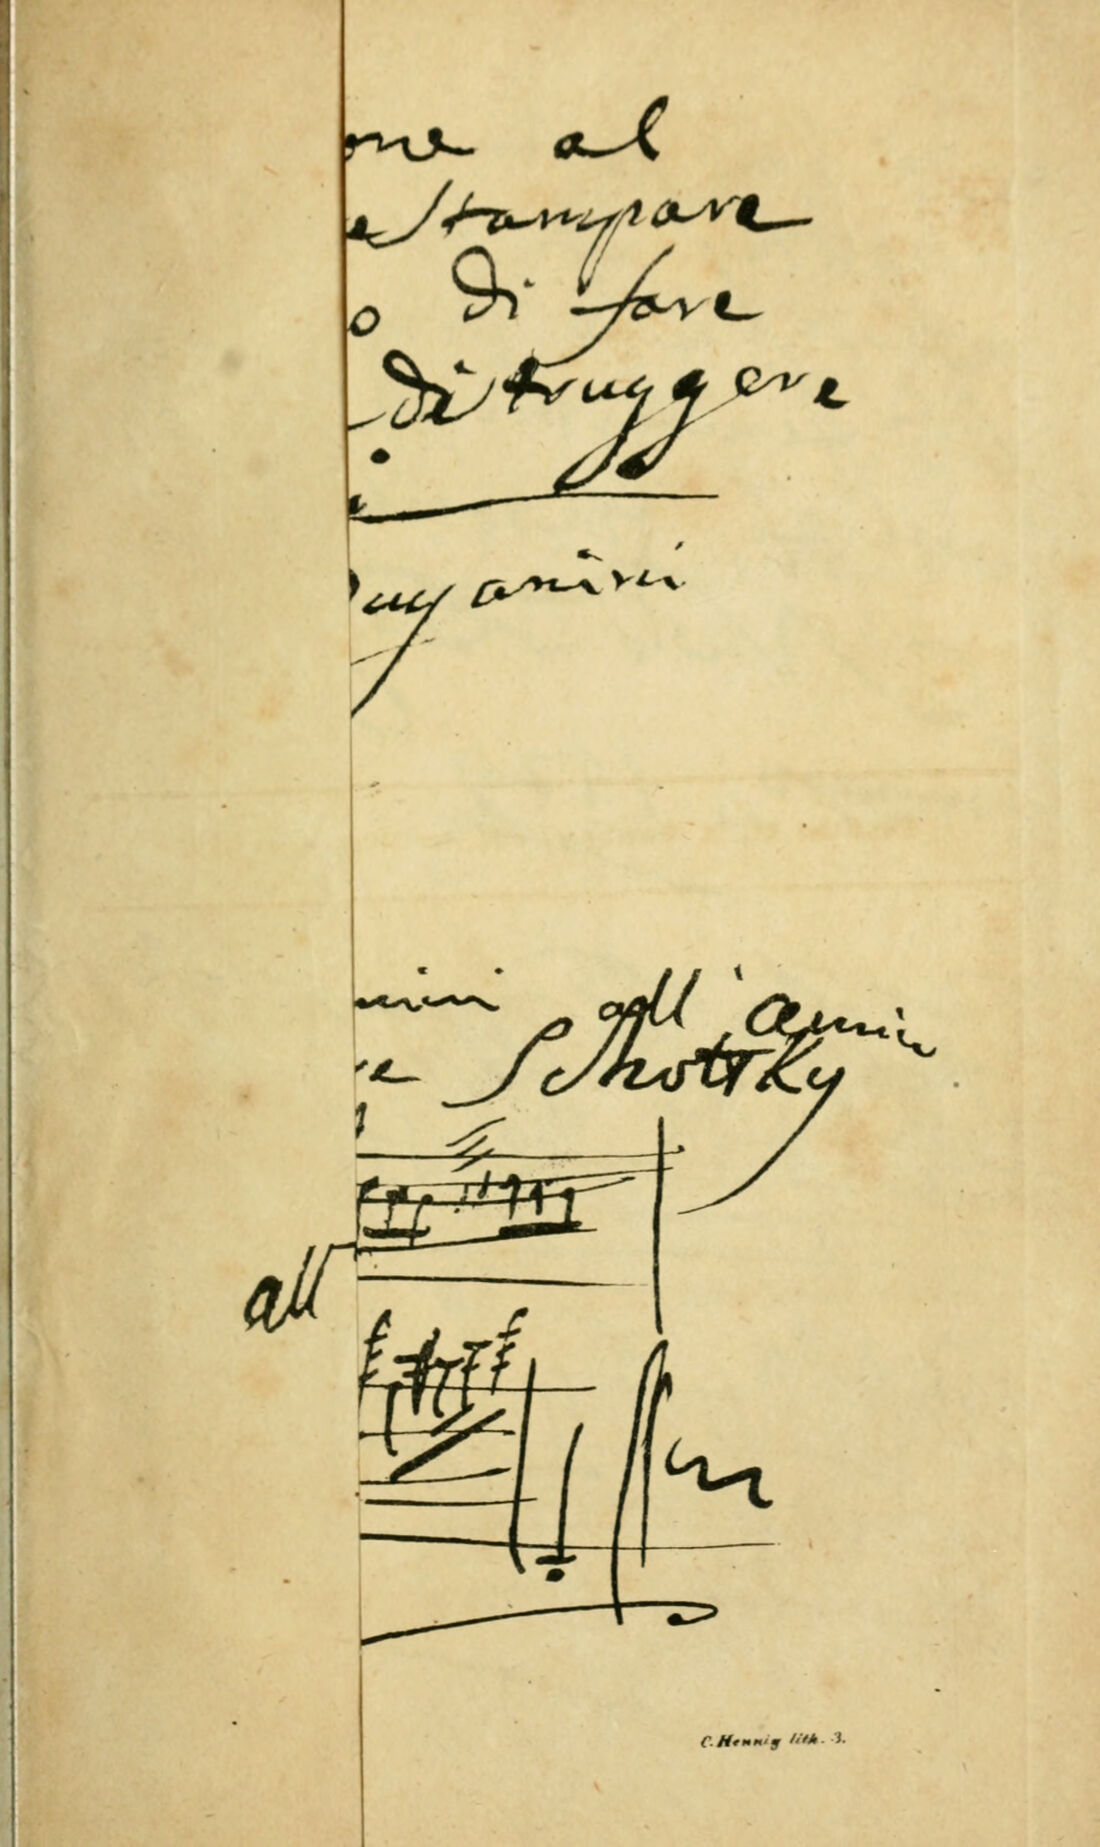 one al
e stampare
o di fare
distruggere
Paganini
nini all'amico
re Schottky
all
C. Hennig lith. 3.